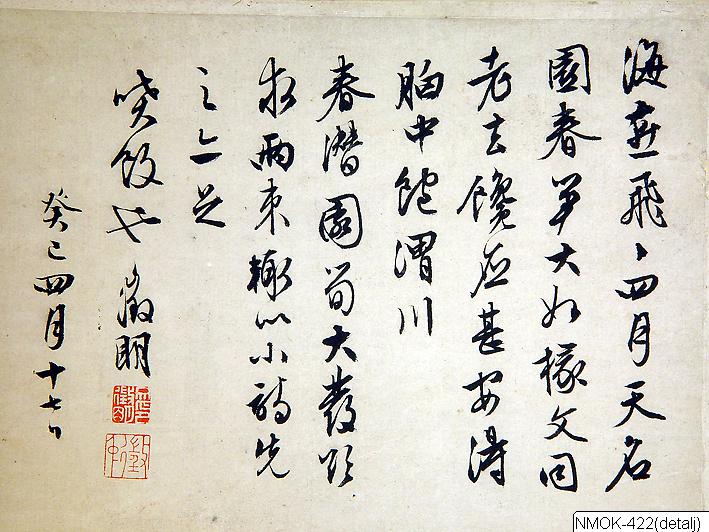 海燕飛〻四月天名
園春笋大如椽文同
老去饞應甚安得
胸中飽渭川
春潛園筍大發欲
求兩束輒以小詩先
之亦足
噴飯也 徵明
癸巳四月十七日
NMOK-422(detalj)